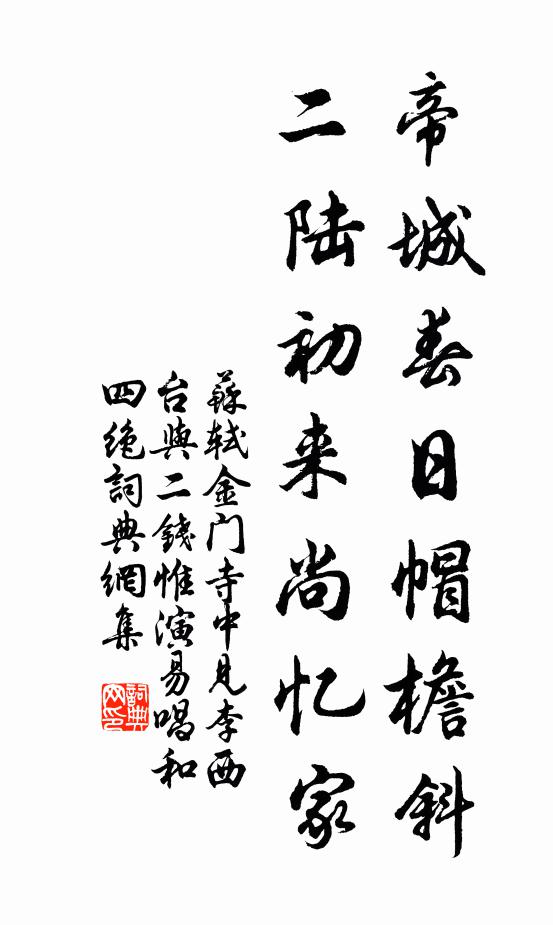 帝城春日帽檐斜
二陆初来尚忆家
蘇軾金门寺中見李西
台與二錢惟演易唱和
四绝詞典網集
詞典网印